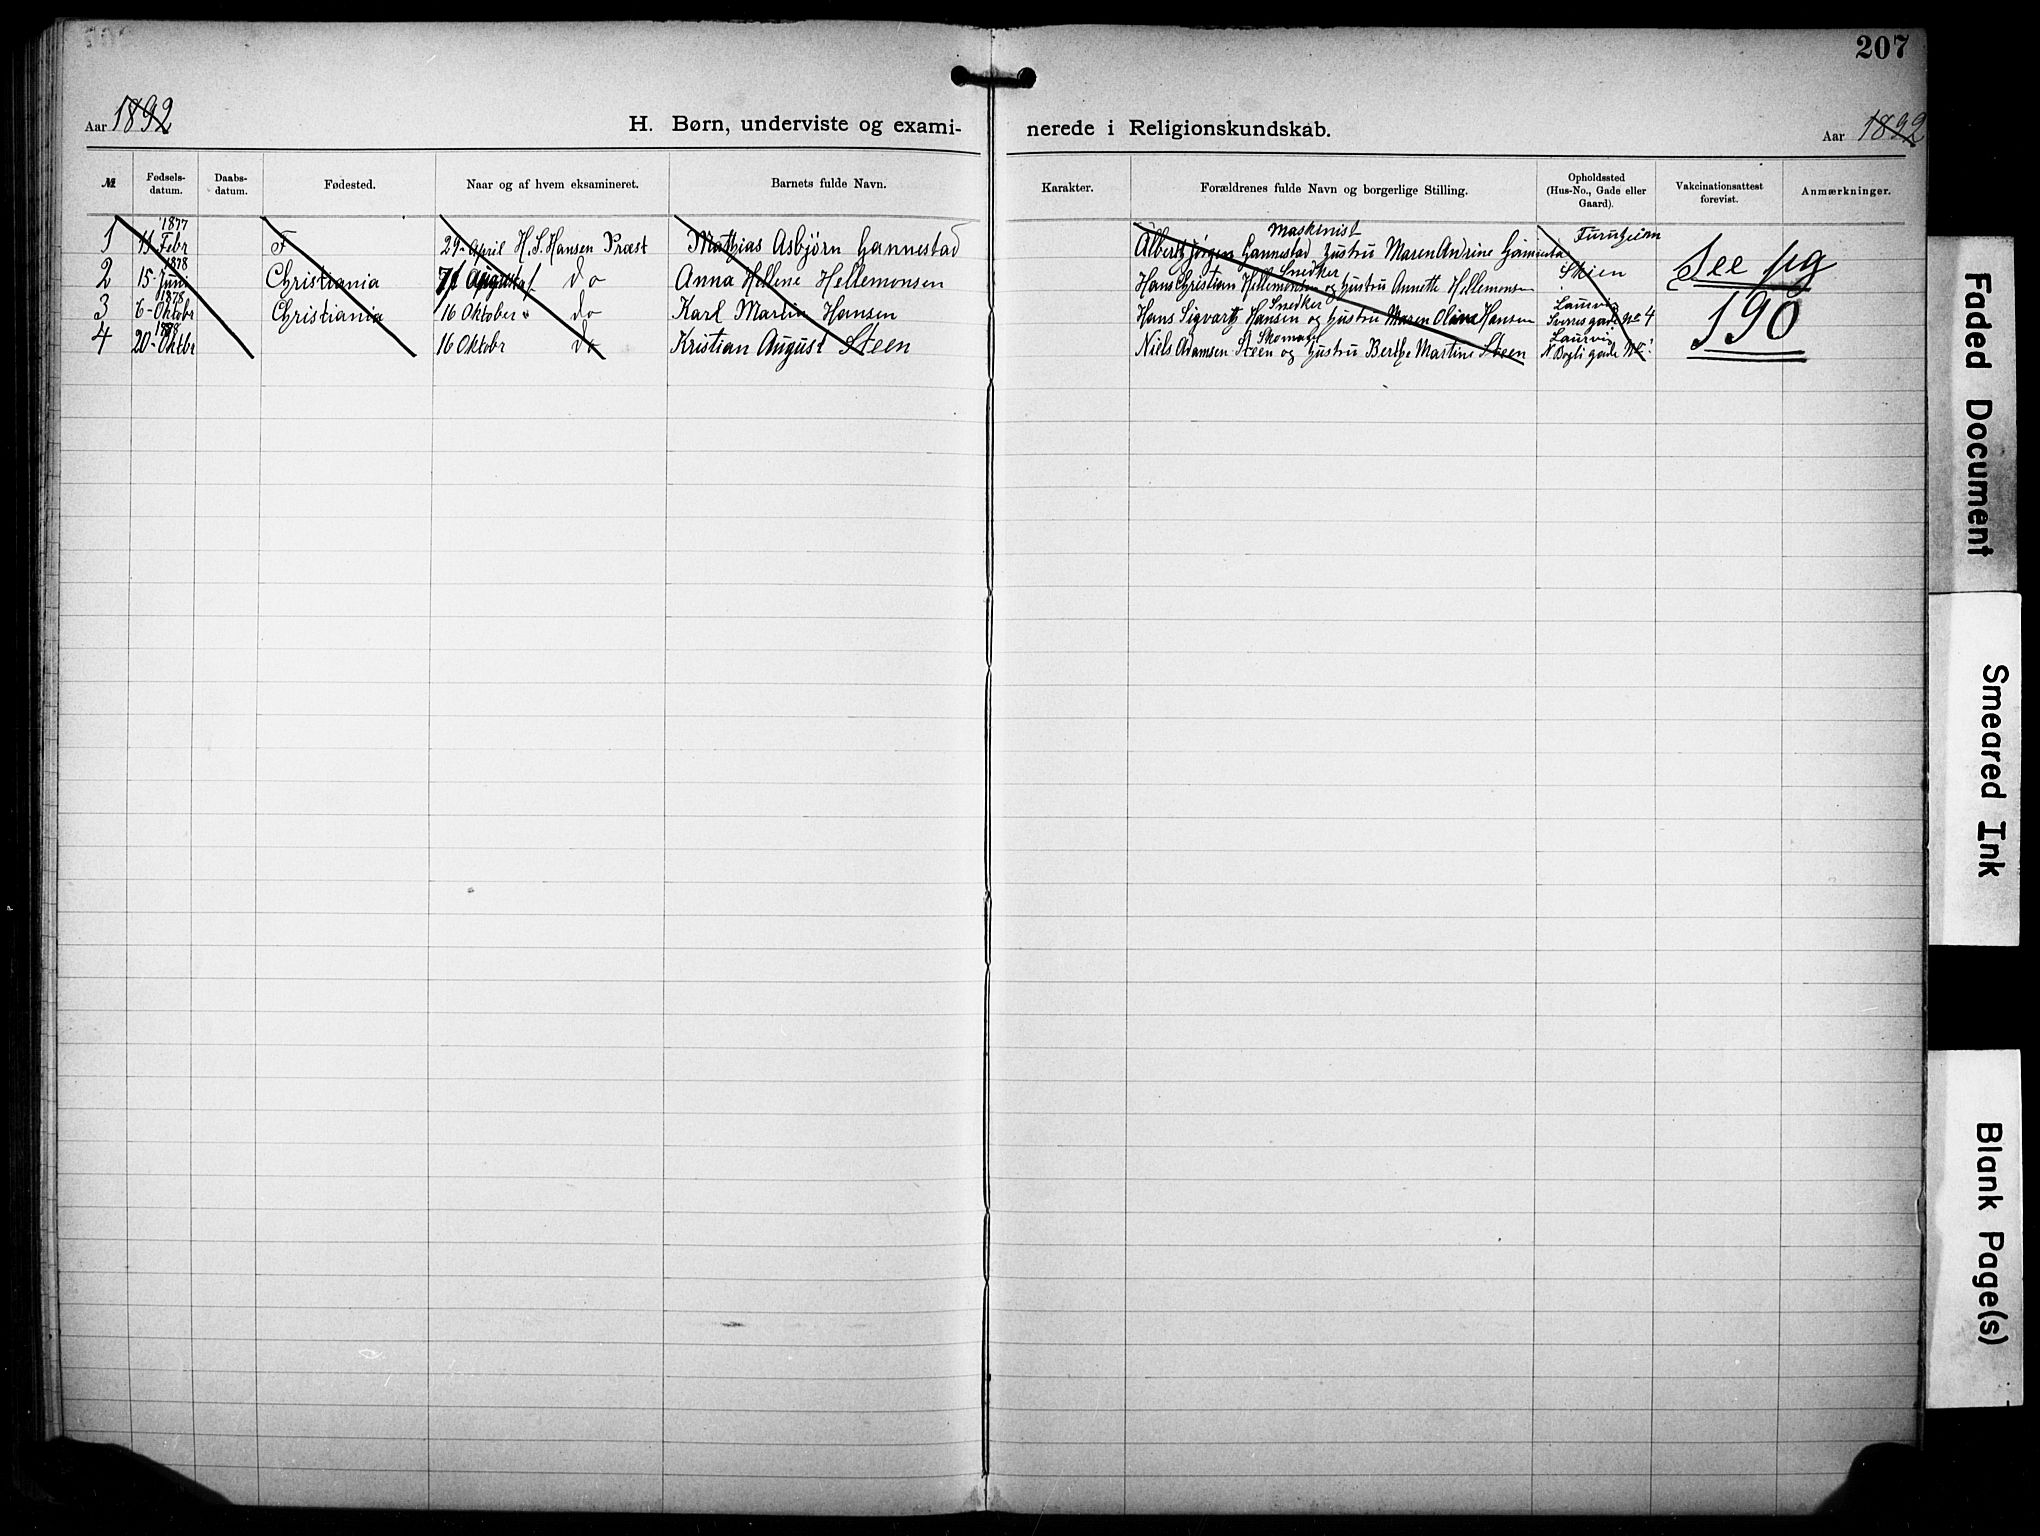 207
Aar 1892
H. Børn, underviste og exami- nerede i Religionskundskab.
Aar 1892
№ Fødsels-datum. Daabs-datum. Fødested. Naar og af hvem eksamineret. Barnets fulde Navn. Karakter. Forældrenes fulde Navn og borgerlige Stilling. Opholdssted (Hus-No., Gade eller Gaard). Vakcinationsattest forevist. Anmærkninger.
1877 Maskinist
1 11 Febr F 29- April H. S. Hansen Præst Mathias Asbjørn Gannestad Albert Jørgen Gannestad Hustru Maren Andrine Furuheim Skien See pg
1878 Snedker
2 15- Juni Christiania 7/ August do Anna Hellene Hellemonsen Hans Christian Hellemonsen og Hustru Annette Hellemonsen
1878 Snedker Laurvig
3 6- Oktobr Christiania 16 Oktober do Karl Martin Hansen Hans Sigvart Hansen og Hustru Maren Olina Hansen gade No 4 190
1878 Skomager Laurvig
4 20- Oktbr 16 Oktobr do Kristian August Steen Niels Adamsen Steen og Hustru Berthe Martine Steen gade
Faded Document
Smeared Ink
Blank Page(s)